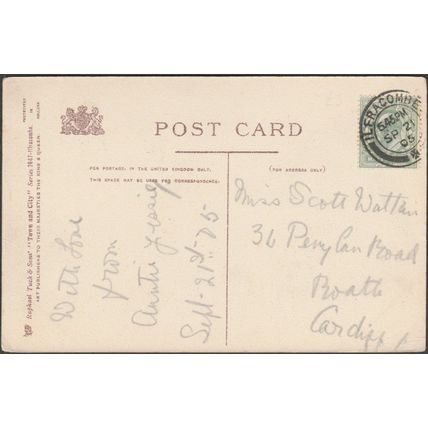 POST CARD
FOR POSTAGE IN THE UNITED KINGDOM ONLY,
THIS SPACE MAY BE USED FOR CORRESPONDENCE
(FOR ADDRESS ONLY)
With love
from
Auntie Jessie
Sept. 21st 05
Miss Scott Wattain
36 Penylan Road
Roath
Cardiff
ILFRACOMBE
5.45PM
SP 21
05
Raphael Tuck & Sons' "Town and City" Series 2041 Ilfracombe.
ART PUBLISHERS TO THEIR MAJESTIES THE KING & QUEEN.